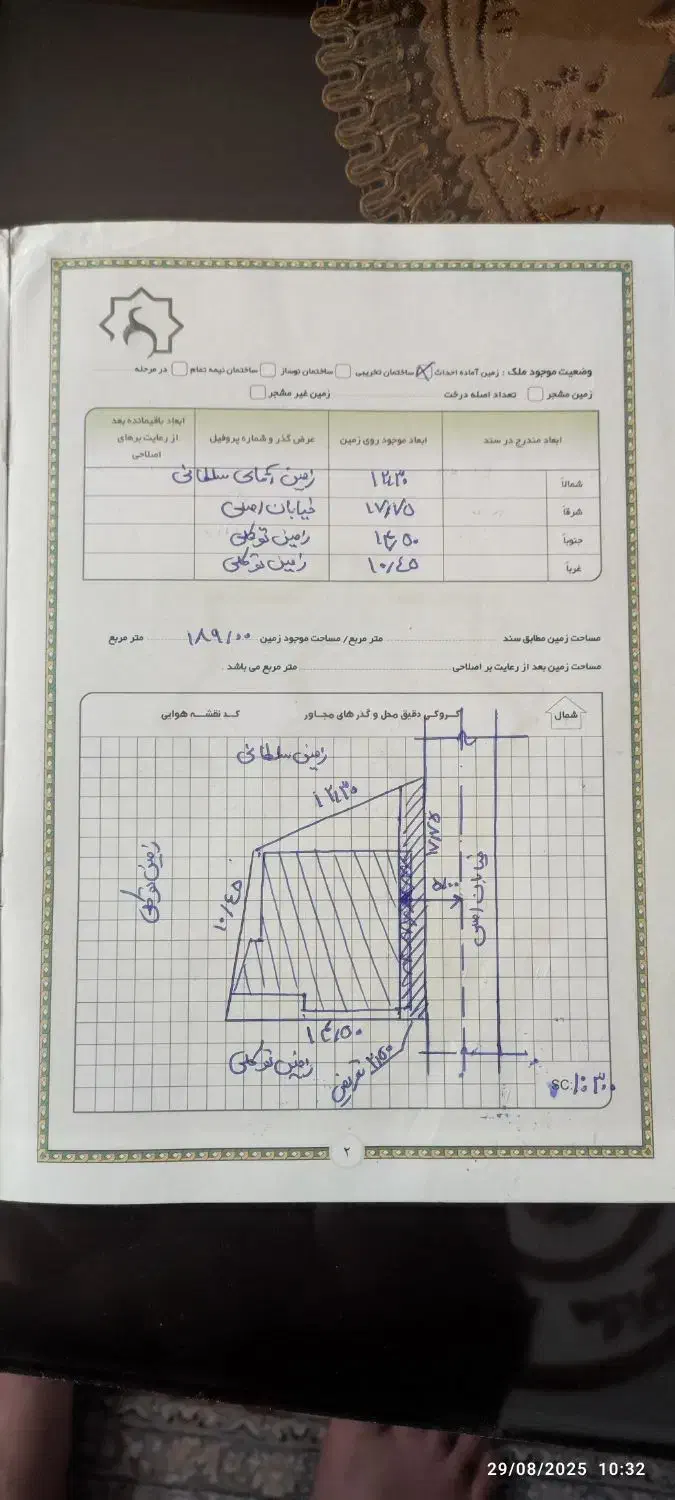 وضعیت موجود ملک : زمین آماده احداث ساختمان تخریبی ساختمان نوساز ساختمان نیمه تمام در مرحله
زمین مشجر تعداد اصله درخت زمین غیر مشجر
ابعاد مندرج در سند ابعاد موجود روی زمین عرض گذر و شماره پروفیل ابعاد باقیمانده بعد از رعایت برهای اصلاحی
شمالاً ۱۲/۳۰ زمین آقای سلطانی
شرقاً ۱۷/۷۵ خیابان اصلی
جنوباً ۱۴/۵۰ زمین توکلی
غرباً ۱۰/۴۵ زمین توکلی
مساحت زمین مطابق سند متر مربع/ مساحت موجود زمین ۱۸۹/۰۰ متر مربع
مساحت زمین بعد از رعایت بر اصلاحی متر مربع می باشد .
شمال کروکی دقیق محل و گذر های مجاور کد نقشه هوایی
زمین سلطانی
۱۲/۳۰
۱۷/۷۵
زمین توکلی
۱۰/۴۵
خیابان اصلی
۱۴/۵۰
زمین توکلی
۲/۵۰ تعریض
SC: ۱:۳۰۰
۲
29/08/2025 10:32